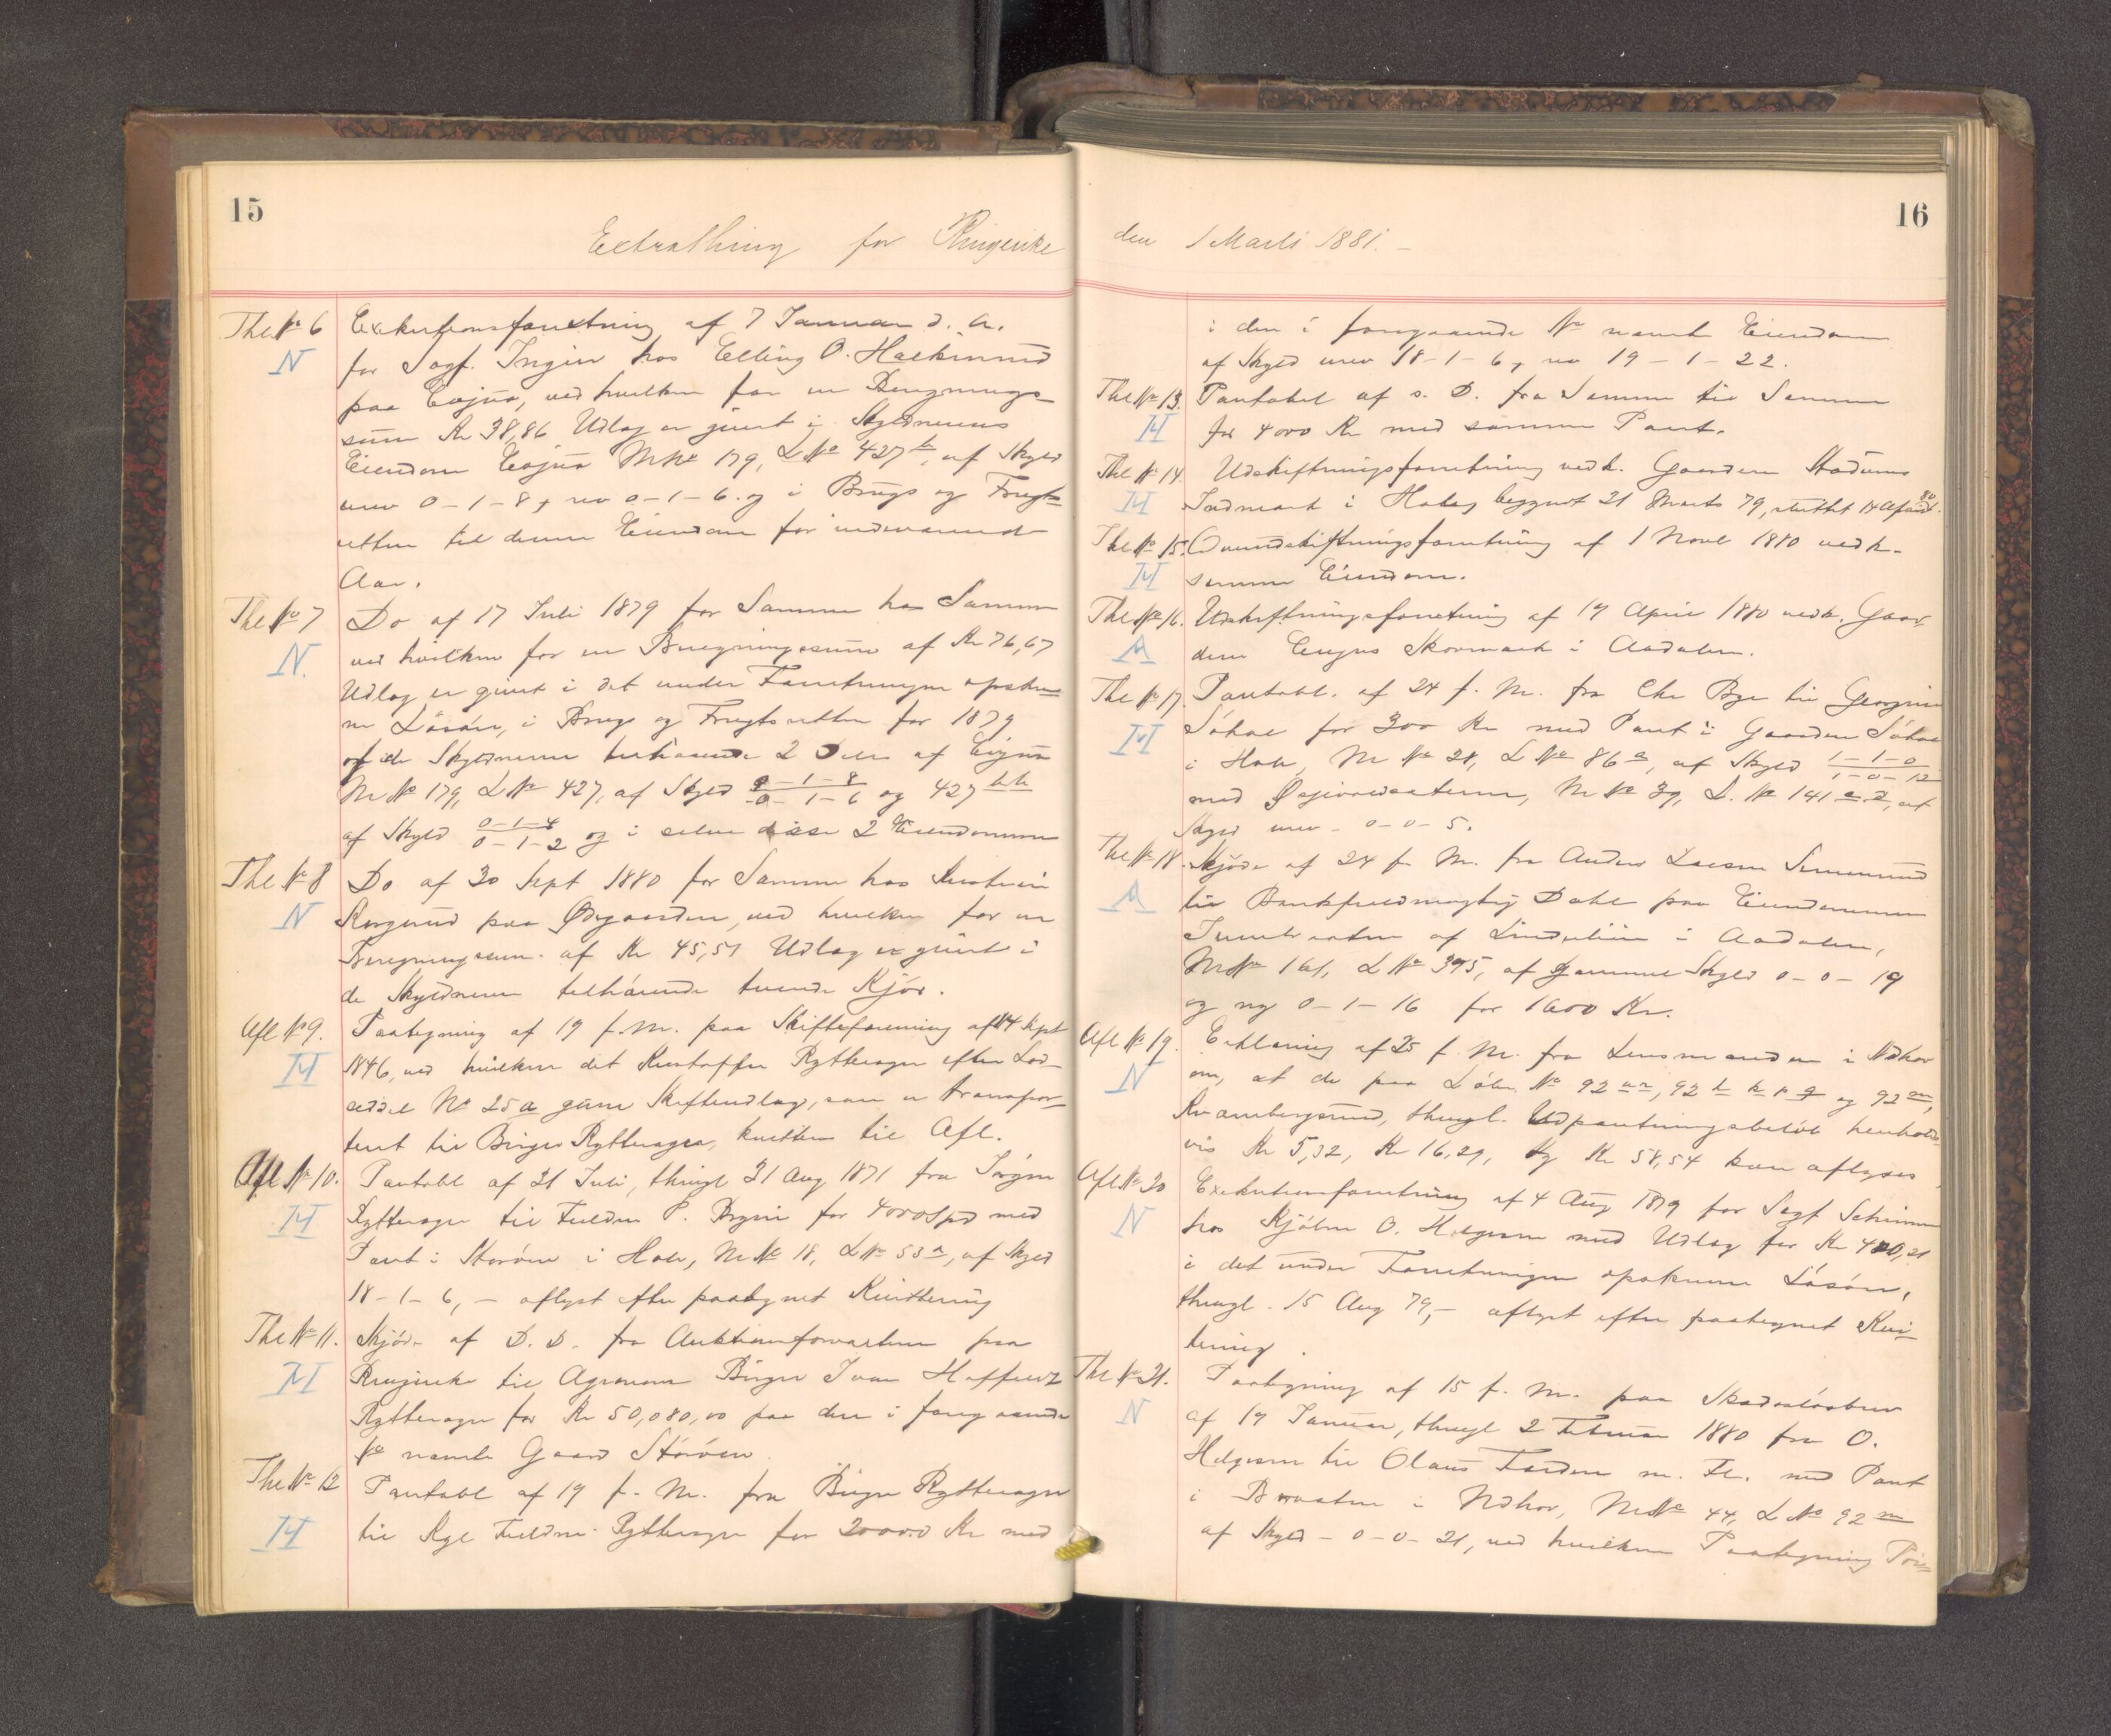 15
Extrathing for Ringerike
Thl. No 6 Exekutionsforretning af 7 Januar d. A.
N for Sagf. Ingier hos Elling O. Haekinrud
paa , ved hvilken for en Beregnings-
sum Kr 38,86 Udlæg er givet i Skyldnerens
Eiendom M No 179, L No 427 b, af Skyld
urev 0-1-8, rev 0-1-6. og i Brugs og Frugts-
retten til denne Eiendom for indeværende
Aar.
Thl. No 7 Do af 17 Juli 1879 for Samme hos Samme
N. ved hvilken for en Beregningssum af Kr 76,67
Udlæg er givet i det under Forretningen opskrev-
ne Løsøre, i Brugs og Frugtsretten for 1879
af de Skyldneren tilhørende 2 Dele af
M No 179, L No 427, af Skyld 0-1-8 / 0-1-6 og 427 bb
af Skyld 0-1-4 / 0-1-2 og i selve disse 2 Eiendomme
Thl No 8 Do af 30 Sept 1880 for Samme hos Kristian
N paa Ødegaarden, ved hvilken for en
Beregningssum af Kr 45,51 Udlæg er givet i
de Skyldneren tilhørende tvende Kjør.
Afl No 9. Paategning af 19 f. M. paa Skifteforretning af 14 Sept
H 1846, ved hvilken det Kristoffer Rytterager efter Lod-
seddel No 25 a givne Skifteudlæg, som er transpor-
tert til Birger Rytterager, kvitteres til Afl.
Afl No 10. Pantobl af 21 Juli, thingl 31 Aug 1871 fra Jørgen
H Rytterager til Fuldm P. for 4000 Spd med
Pant i Storøen i Hole, M No 18, L No 53 a, af Skyld
18-1-6, - aflyst efter paategnet Kvittering
Thl No 11. Skjøde af D. D. fra Auktionsforvalteren paa
H Ringerike til Agronom Birger Ivar Hoffertz
Rytterager for Kr 50,080,00 paa den i foregaaende
No nævnte Gaard Storøen.
Thl No 12 Pantobl af 19 f. M. fra Birger Rytterager
H til Kgl Fuldm. Rytterager for 20000 Kr med
16
den 1 Marts 1881. -
i den i foregaaende No nævnte Eiendom
af Skyld urev 18-1-6, rev 19-1-22.
Thl No 13. Pantobl af s. D. fra Samme til Samme
H for 4000 Kr med samme Pant.
Thl No 14. Udskiftningsforretning vedk. Gaarden Stadums
H Indmark i Hole, begyndt 21 Marts 79, sluttet 14 April 80.
Thl No 15. Overudskiftningsforretning af 1 Novb 1880 vedk.
H samme Eiendom.
Thl No 16. Udskiftningsforretning af 19 April 1880 vedk. Gaar-
A dene Skovmark i Aadalen.
Thl No 17. Pantobl. af 24 f. M. fra Chr Bye til Georgine
H Søhol for 300 Kr med Pant i Gaarden Søhol
i Hole, M No 28, L No 86 a, af Skyld 1-1-0 / 1-0-12
med , M No 39, L. No 141 a d, af
Skyld urev - 0-0-5.
Thl No 18. Skjøde af 24 f. M. fra Anders Larsen Semmenrud
A til Bankfuldmægtig Dahl paa Eiendommen
af Linderlien i Aadalen,
M No 161, L No 395, af gammel Skyld 0-0-19
og ny 0-1-16 for 1600 Kr.
Afl No 19. Erklæring af 25 f. M. fra Lensmanden i Ndhov
N om, at de paa Løbe No 92 , 92 og 92 m,
Kvambergsrud, thingl. Udpantningsbeløb henholds-
vis Kr 5,32, Kr 16,29, og Kr 58,54 kan aflyses
Afl No 20 Exekutionsforretning af 4 Aug 1879 for Sagf
N hos Kjølen O. Helgesen med Udlæg for Kr 420,21
i det under Forretningen opskrevne Løsøre,
thingl. 15 Aug 79, - aflyst efter paategnet Kvit-
tering.
Thl No 21. Paategning af 15 f. M. paa Skadesløsbrev
N af 19 Januar, thingl 2 Februar 1880 fra O.
Helgesen til Olaus m. Fl. med Pant
i Braaten i Ndhov, M No 44, L No 92 m
af Skyld - 0-0-21, ved hvilken Paategning